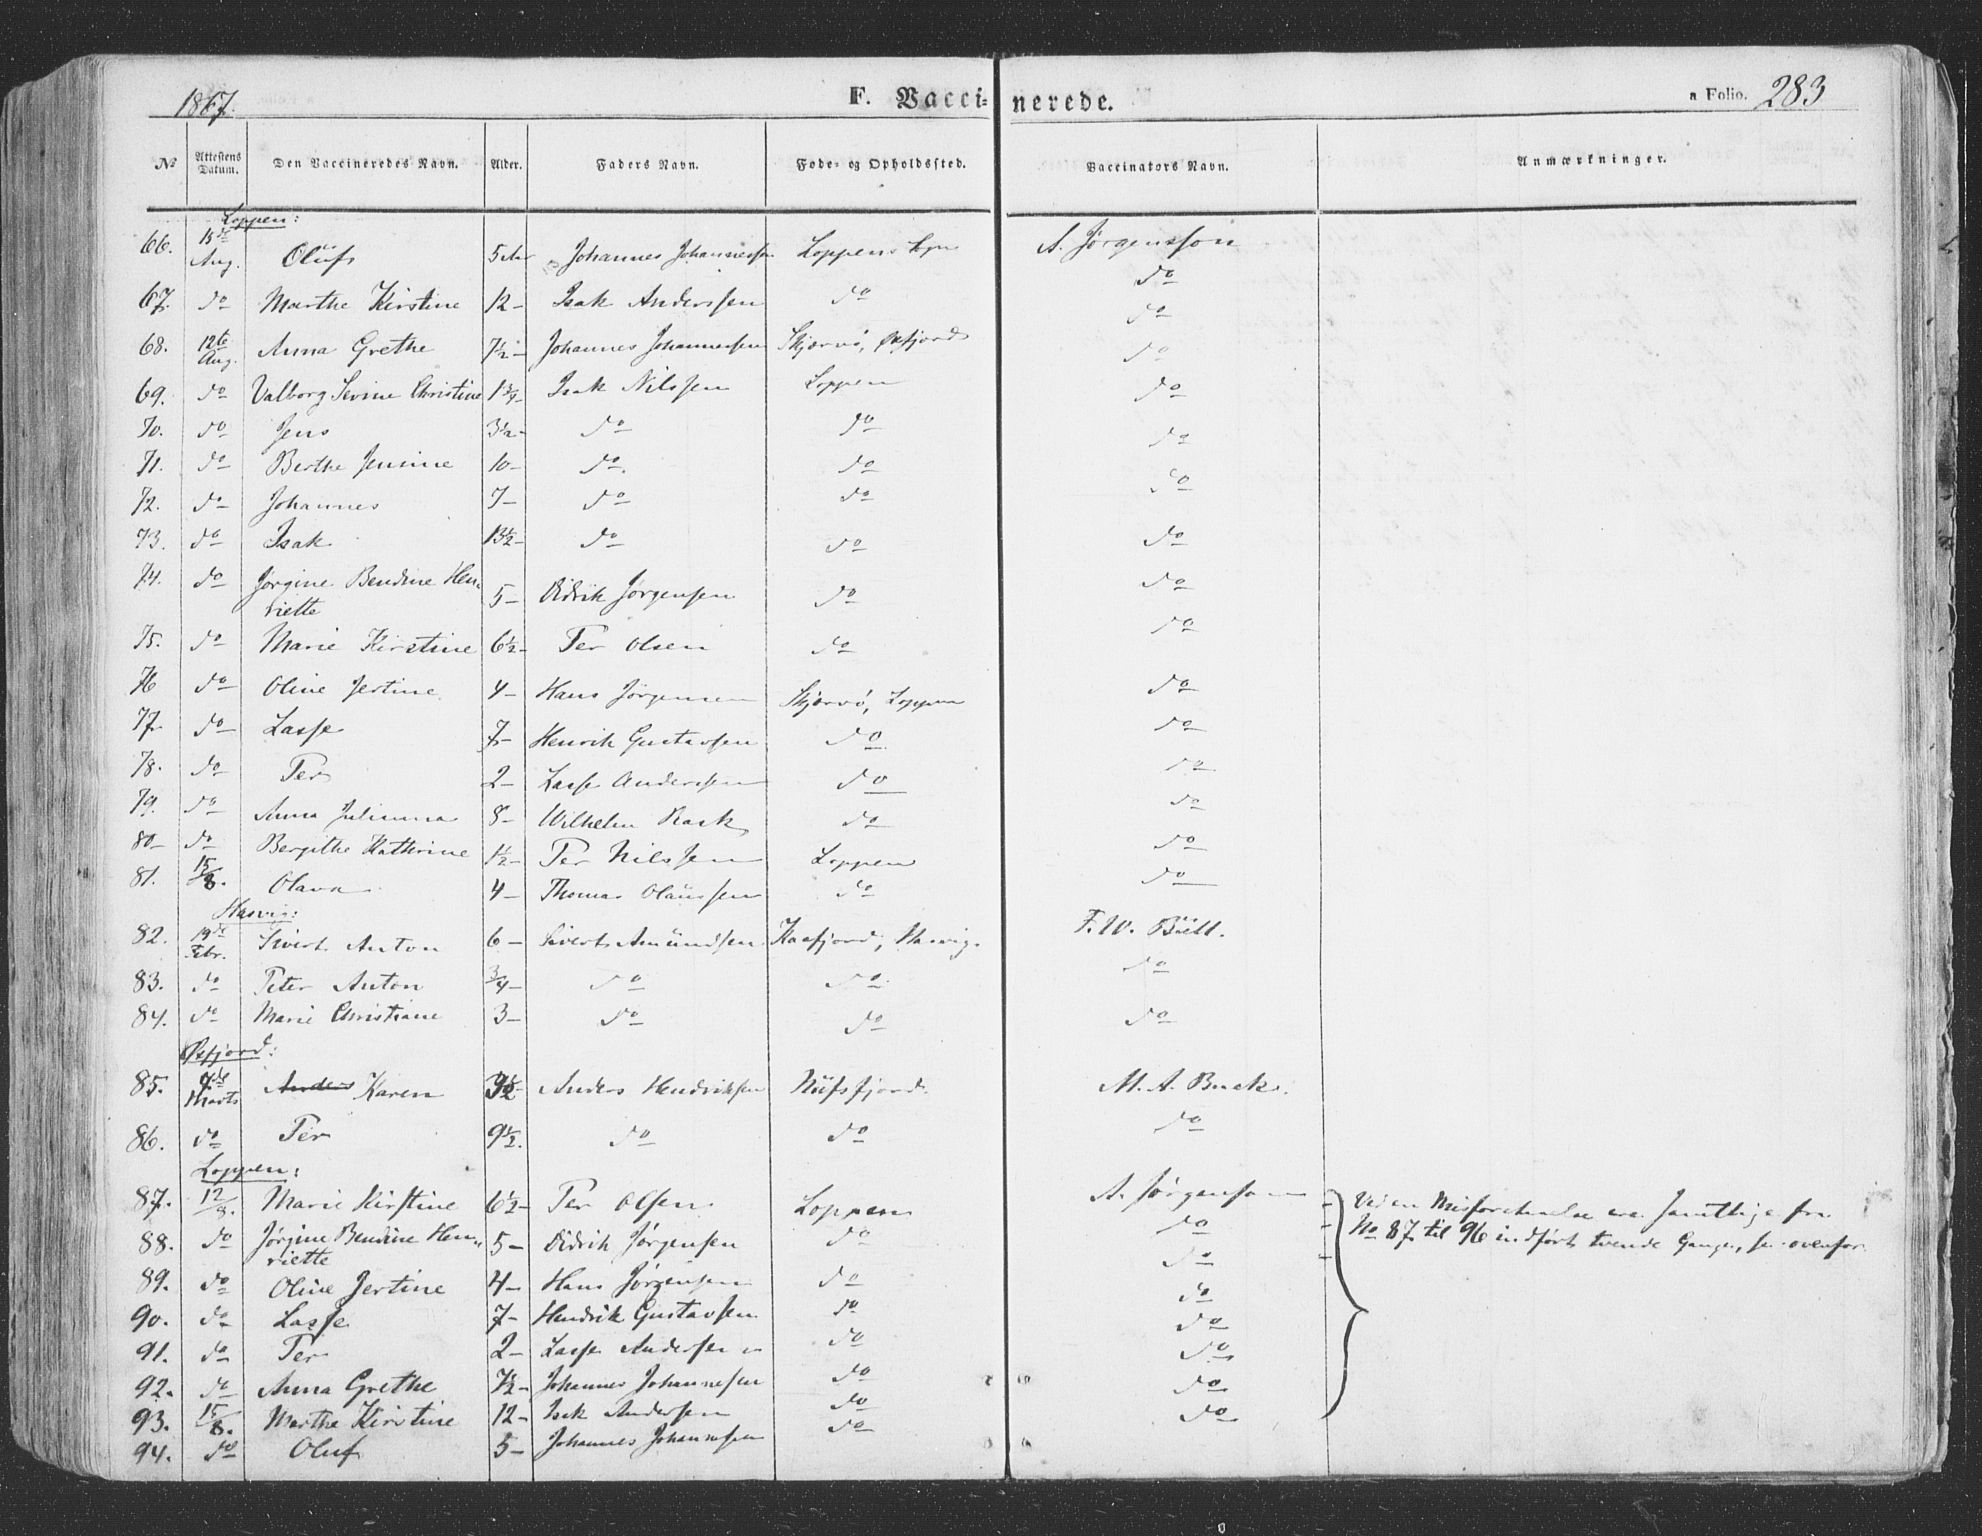 1867.
F. Vaccinerede.
a Folio. 283
No Attestens Datum. Den Vaccineredes Navn. Alder. Faders Navn. Føde- og Opholdssted. Vaccinators Navn. Anmærkninger.
Loppen:
66. 15de Aug. Oluf 5 Aar Johannes Johannessen Loppens Sogn A. Jørgensson
67. do Marthe Kirstine 12- Isak Anderssen do do
68. 12te Aug. Anna Grethe 7½- Johannes Johannessen Skjærvø, Øxfjord do
69. do Valborg Sevine Christine 1¾- Isak Nilssen Loppen do
70. do Jens 3½- do do do
71. do Berthe Jensine 10- do do do
72. do Johannes 7- do do do
73. do Isak 13½- do do do
74. do Jørgine Bendine Hen-
riette 5- Didrik Jørgensen do do
75. do Marie Kirstine 6½- Per Olsen do do
76 do Oline Jertine 4- Hans Jørgensen Skjærvø, Loppen do
77. do Lasse 7- Henrik Gustavsen do do
78. do Per 2- Lasse Anderssen do do
79. do Anna Julianna 8- Wilhelm Rask do do
80- do Bergithe Kathrine 1½- Per Nilssen Loppen do
81. 15/8. Olava 4- Thomas Olaussen do do
Hasvig:
82. 19de Febr. Sivert Anton 6- Sivert Amundsen Kaafjord, Hasvig. F. W. Büll.
83. do Peter Anton ¾- do do do
84. do Marie Christiane 3- do do do
Øxfjord:
85. 4de Marts Anders Karen 3½- Anders Hendriksen Nufsfjord. M. A. Buck.
86. do Per 9½. do do do
Loppen:
87. 12/8. Marie Kirstine 6½- Per Olsen Loppen A. Jørgensen Ved en Misforstaaelse ere samtlige fra
88. do Jørgine Bendine Hen-
riette 5- Didrik Jørgensen do do No 87 til 96 indført tvende Gange, se ovenfor.
89. do Oline Jertine 4- Hans Jørgensen do do
90. do Lasse 7- Hendrik Gustavsen do do
91. do Per 2- Lasse Andersen do do
92. do Anna Grethe 7½- Johannes Johannesen do do
93. 15/8. Marthe Kirstine 12- Isak Andersen do do
94. do Oluf 5- Johannes Johannesen do do